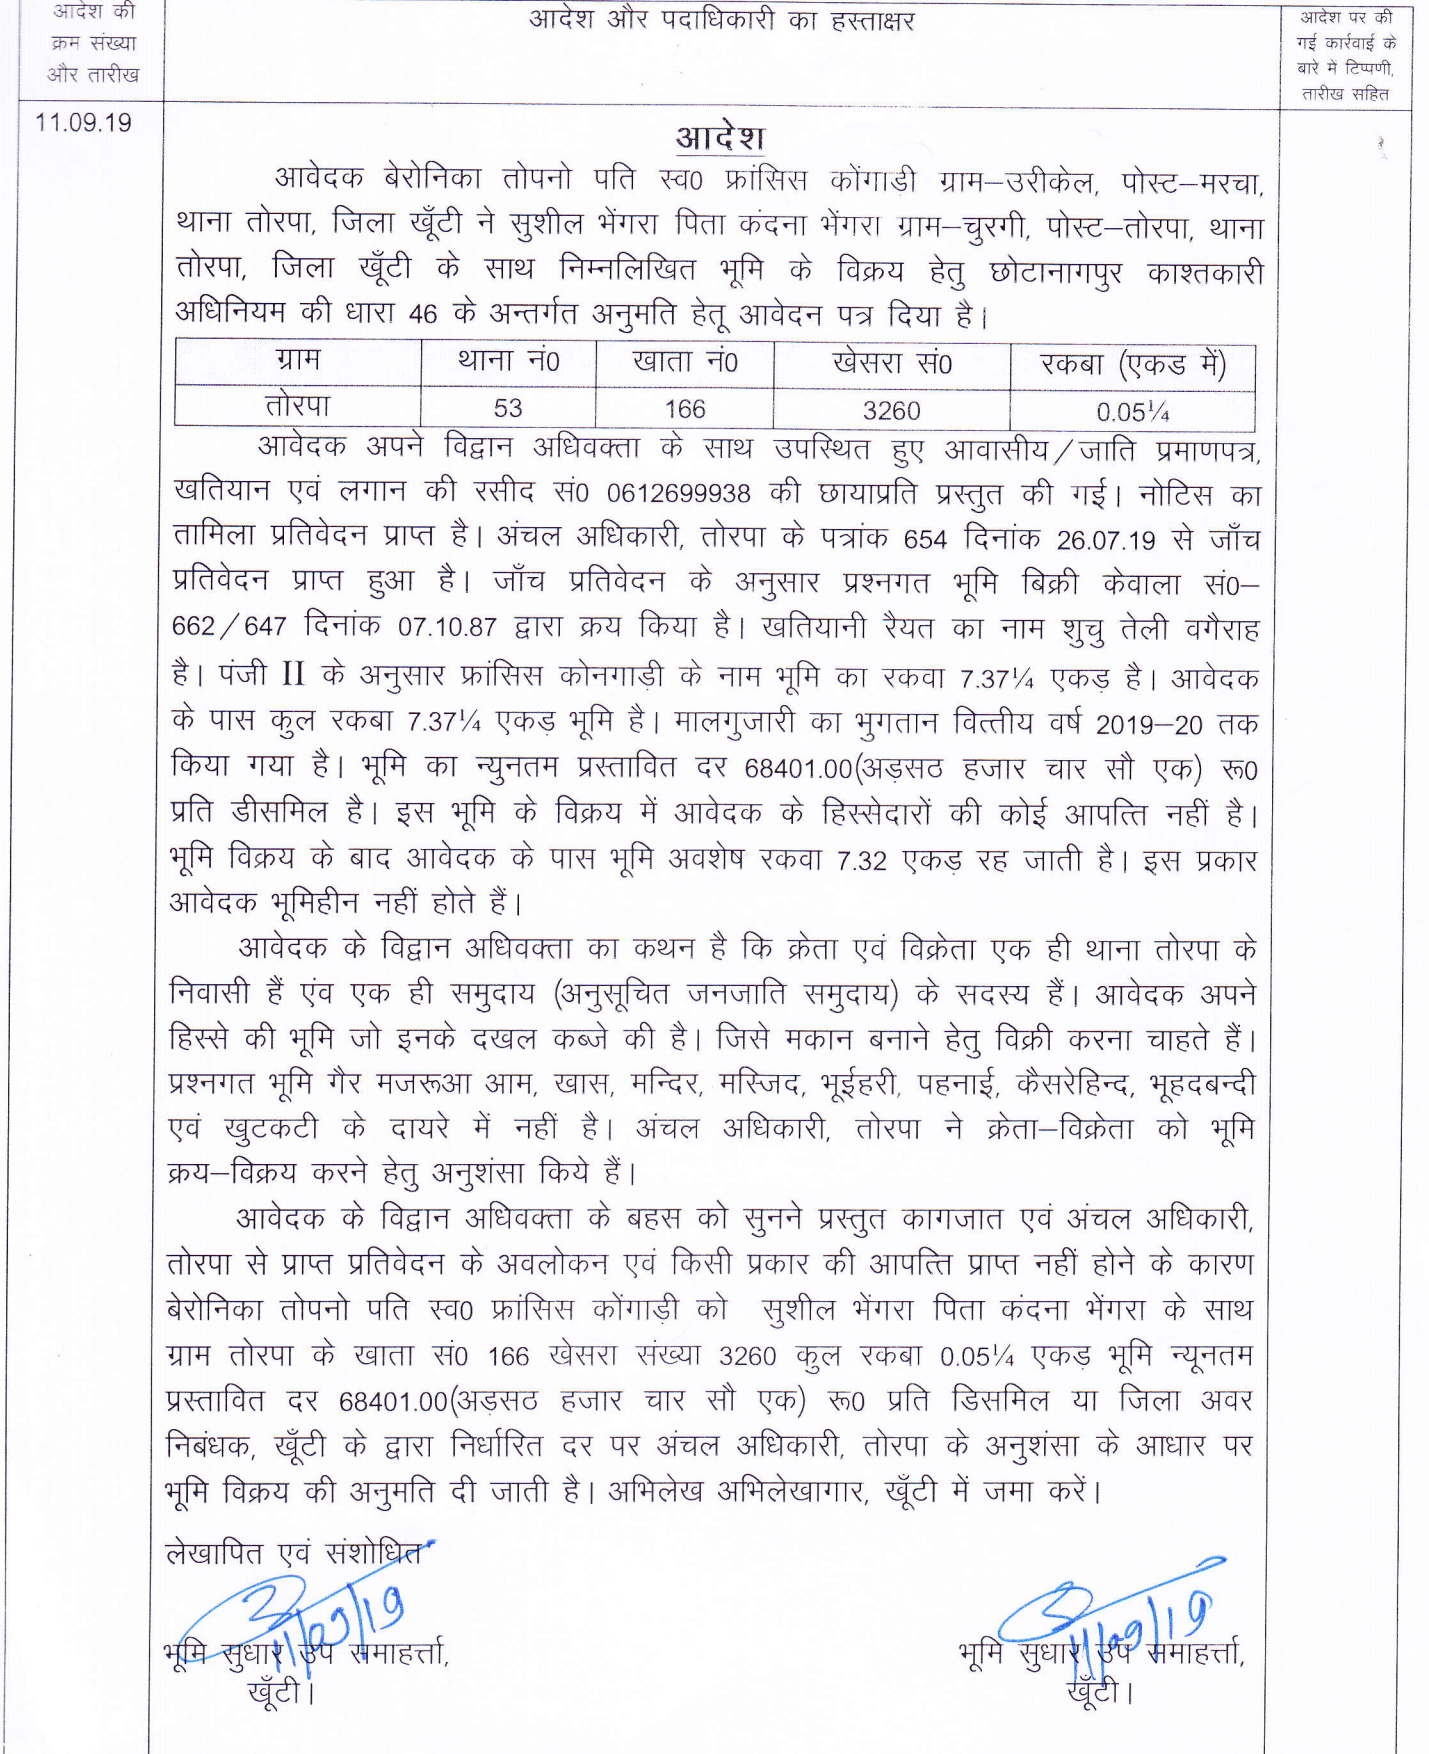 आदेश की
क्रम संख्या
और तारीख
आदेश और पदाधिकारी का हस्ताक्षर
आदेश पर की
गई कार्रवाई के
बारे में टिप्पणी,
तारीख सहित
11.09.19
आदेश
आवेदक बेरोनिका तोपनो पति स्व0 फ्रांसिस कोंगाडी ग्राम–उरीकेल, पोस्ट–मरचा,
थाना तोरपा, जिला खूँटी ने सुशील भेंगरा पिता कंदना भेंगरा ग्राम–चुरगी, पोस्ट–तोरपा, थाना
तोरपा, जिला खूँटी के साथ निम्नलिखित भूमि के विक्रय हेतु छोटानागपुर काश्तकारी
अधिनियम की धारा 46 के अन्तर्गत अनुमति हेतू आवेदन पत्र दिया है।
ग्राम थाना नं0 खाता नं0 खेसरा सं0 रकबा (एकड में)
तोरपा 53 166 3260 0.05¼
आवेदक अपने विद्वान अधिवक्ता के साथ उपस्थित हुए आवासीय/जाति प्रमाणपत्र,
खतियान एवं लगान की रसीद सं0 0612699938 की छायाप्रति प्रस्तुत की गई। नोटिस का
तामिला प्रतिवेदन प्राप्त है। अंचल अधिकारी, तोरपा के पत्रांक 654 दिनांक 26.07.19 से जाँच
प्रतिवेदन प्राप्त हुआ है। जाँच प्रतिवेदन के अनुसार प्रश्नगत भूमि बिक्री केवाला सं0–
662/647 दिनांक 07.10.87 द्वारा क्रय किया है। खतियानी रैयत का नाम शुचु तेली वगैराह
है। पंजी II के अनुसार फ्रांसिस कोनगाड़ी के नाम भूमि का रकवा 7.37¼ एकड़ है। आवेदक
के पास कुल रकबा 7.37¼ एकड़ भूमि है। मालगुजारी का भुगतान वित्तीय वर्ष 2019–20 तक
किया गया है। भूमि का न्युनतम प्रस्तावित दर 68401.00(अड़सठ हजार चार सौ एक) रू0
प्रति डीसमिल है। इस भूमि के विक्रय में आवेदक के हिस्सेदारों की कोई आपत्ति नहीं है।
भूमि विक्रय के बाद आवेदक के पास भूमि अवशेष रकवा 7.32 एकड़ रह जाती है। इस प्रकार
आवेदक भूमिहीन नहीं होते हैं।
आवेदक के विद्वान अधिवक्ता का कथन है कि क्रेता एवं विक्रेता एक ही थाना तोरपा के
निवासी हैं एंव एक ही समुदाय (अनुसूचित जनजाति समुदाय) के सदस्य हैं। आवेदक अपने
हिस्से की भूमि जो इनके दखल कब्जे की है। जिसे मकान बनाने हेतु विक्री करना चाहते हैं।
प्रश्नगत भूमि गैर मजरूआ आम, खास, मन्दिर, मस्जिद, भूईहरी, पहनाई, कैसरेहिन्द, भूहदबन्दी
एवं खुटकटी के दायरे में नहीं है। अंचल अधिकारी, तोरपा ने क्रेता–विक्रेता को भूमि
क्रय–विक्रय करने हेतु अनुशंसा किये हैं।
आवेदक के विद्वान अधिवक्ता के बहस को सुनने प्रस्तुत कागजात एवं अंचल अधिकारी,
तोरपा से प्राप्त प्रतिवेदन के अवलोकन एवं किसी प्रकार की आपत्ति प्राप्त नहीं होने के कारण
बेरोनिका तोपनो पति स्व0 फ्रांसिस कोंगाड़ी को सुशील भेंगरा पिता कंदना भेंगरा के साथ
ग्राम तोरपा के खाता सं0 166 खेसरा संख्या 3260 कुल रकबा 0.05¼ एकड़ भूमि न्यूनतम
प्रस्तावित दर 68401.00(अड़सठ हजार चार सौ एक) रू0 प्रति डिसमिल या जिला अवर
निबंधक, खूँटी के द्वारा निर्धारित दर पर अंचल अधिकारी, तोरपा के अनुशंसा के आधार पर
भूमि विक्रय की अनुमति दी जाती है। अभिलेख अभिलेखागार, खूँटी में जमा करें।
लेखापित एवं संशोधित
11/09/19 11/09/19
भूमि सुधार उप समाहर्त्ता, भूमि सुधार उप समाहर्त्ता,
खूँटी। खूँटी।